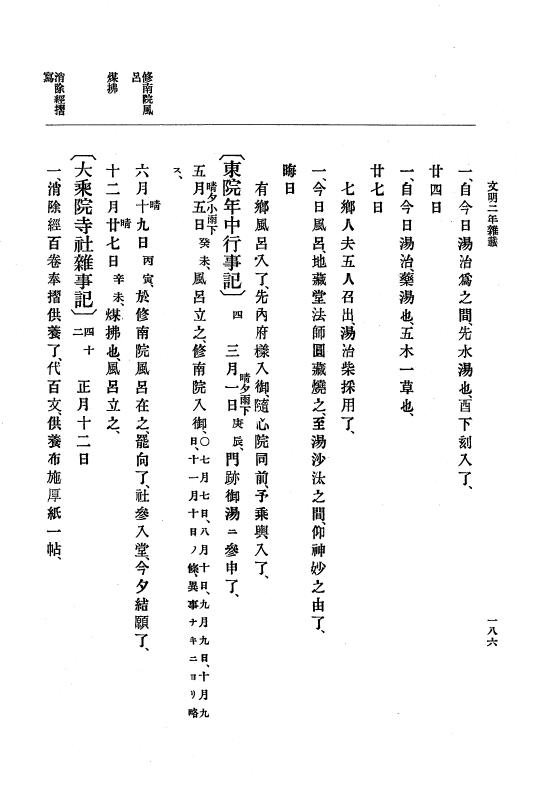 文明二年雜載
一八六
一、自今日湯治爲之間、先水湯也、酉下刻入了、
廿四日
一、自今日湯治藥湯也、五木一草也、
廿七日
七鄕人夫五人召出、湯治柴採用了、
一、今日風呂、地藏堂法師圓藏燒之、至湯沙汰之間、仰神妙之由了、
晦日
有鄕風呂入了、先內府樣入御、隨心院同前、予乘輿、入了、
〔東院年中行事記〕四 三月一日、晴夕雨下庚辰、門跡御湯ニ參申了、
五月五日、晴夕小雨下癸未、風呂立之、修南院入御、○七月七日、八月十日、九月九日、十月九日、十一月十日ノ條、異事ナキニヨリ略
ス、
修南院風呂
六月十九日、晴丙寅、於修南院風呂在之、罷向了、社參入堂、今夕結願了、
煤拂
十二月廿七日、晴辛未、煤拂也、風呂立之、
〔大乘院寺社雜事記〕四十二 正月十二日
消除經摺寫
一、消除經百卷奉摺供養了、代百文、供養布施厚紙一帖、